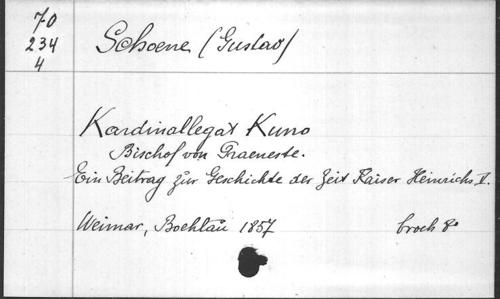 70
234
4
Schoene (Gustav)
Kardinallegat Kuno
Bischof von Praeneste.
Ein Beitrag zur Geschichte der Zeit Kaiser Heinrichs V.
Weimar, Boehlau 1857
broch 8°